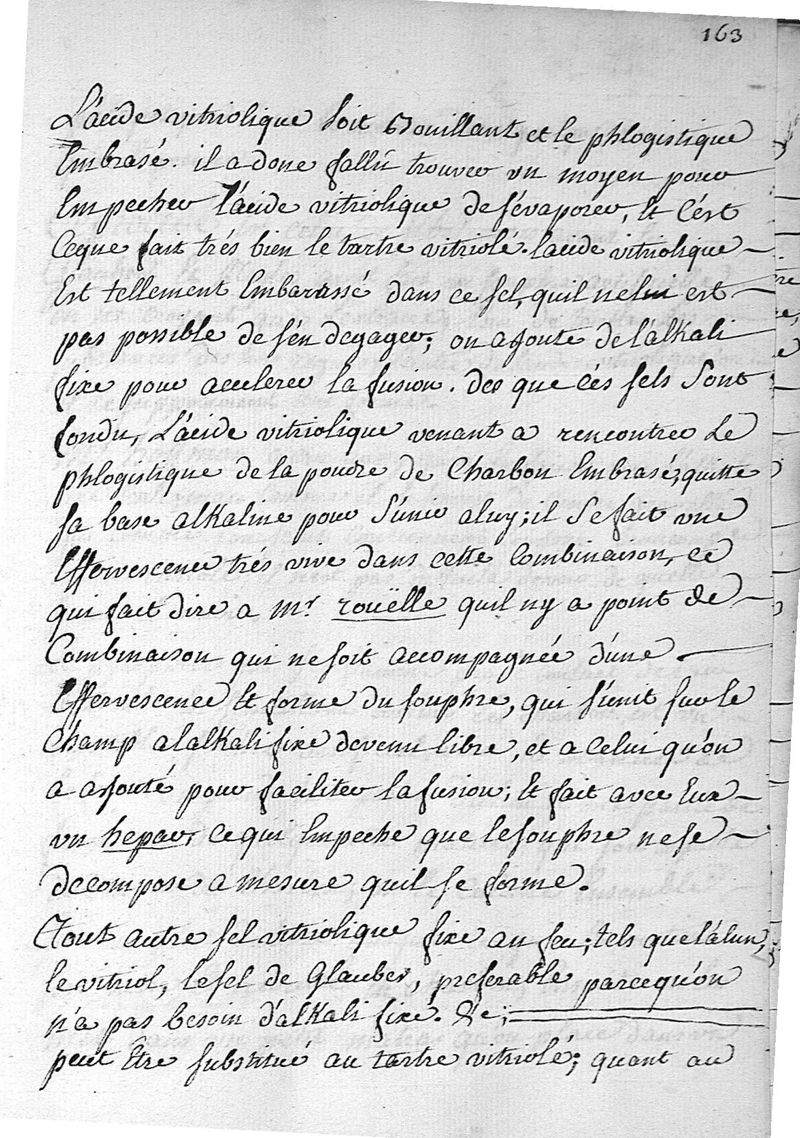 163
L'acide vitriolique soit Bouillant et le phlogistique
Embrasé. il a donc fallû trouver un moyen pour
Empecher l'acide vitriolique de s'évaporer, Et C'ést
Ceque fait trés bien le tartre vitriolé. l'acide vitriolique
Est tellement Embarassé dans ce sel, quil ne lui est
pas possible de s'én degager; on ajoute de l'álkali
fixe pour accelerer la fusion. Des que cés sels sont
fondu, L'ácide vitriolique venant a rencontrer Le
phlogistique de la poudre de Charbon Embrasé, quitte
sa base alkaline pour s'únir a luy; il se fait une
Effervescence trés vive dans cette Combinaison, ce
qui fait dire a mr. rouëlle quil ny a point de
Combinaison qui ne soit accompagnée d'une
Effervescence Et forme du souphre, qui s'unit sur le
Champ a l'alkali fixe devenu libre, et a Celui qu'on
a ajouté pour faciliter la fusion; Et fait avec Eux
un hepar, ce qui Empeche que le souphre ne se
decompose a mesure quil se forme.
Tout autre sel vitriolique fixe au feu; tels que l'álun,
le vitriol, le sel de Glauber, preferable parcequ'on
n'a pas besoin d'alkali fixe. &c;
peut Etre substitué au tartre vitriolé; quant au